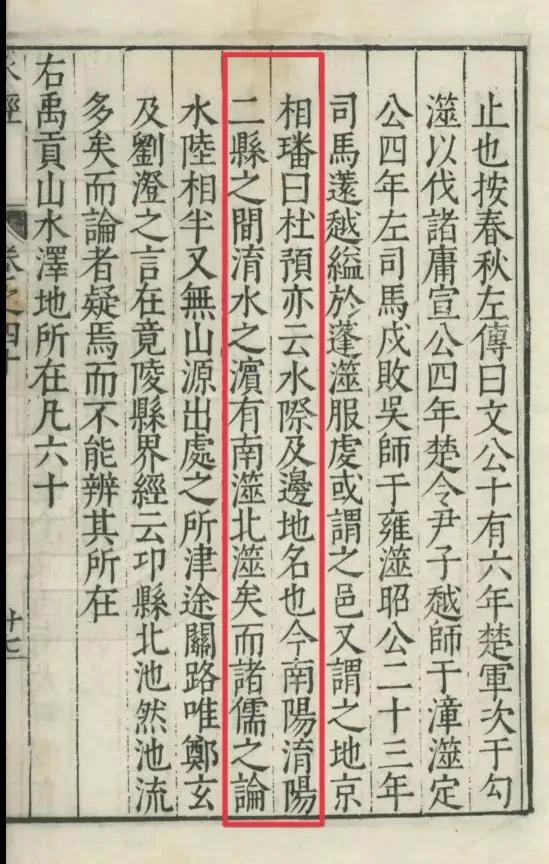 止也按春秋左傳曰文公十有六年楚軍次于勾
澨以伐諸庸宣公四年楚令尹子越師于漳澨定
公四年左司馬戌敗吳師于雍澨昭公二十三年
司馬薳越縊於蓬澨服虔或謂之邑又謂之地京
相璠曰杜預亦云水際及邊地名也今南陽淯陽
二縣之間淯水之濵有南澨北澨矣而諸儒之論
水陸相半又無山源出處之所津途關路唯鄭玄
及劉澄之言在竟陵縣界經云卭縣北池然池流
多矣而論者疑焉而不能辨其所在
右禹貢山水澤地所在凡六十
水經
卷之四十
廿七